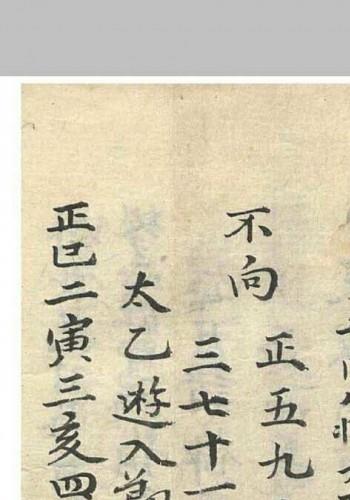 不向
正五九
三七十一
太乙遊入
正巳二寅三亥四